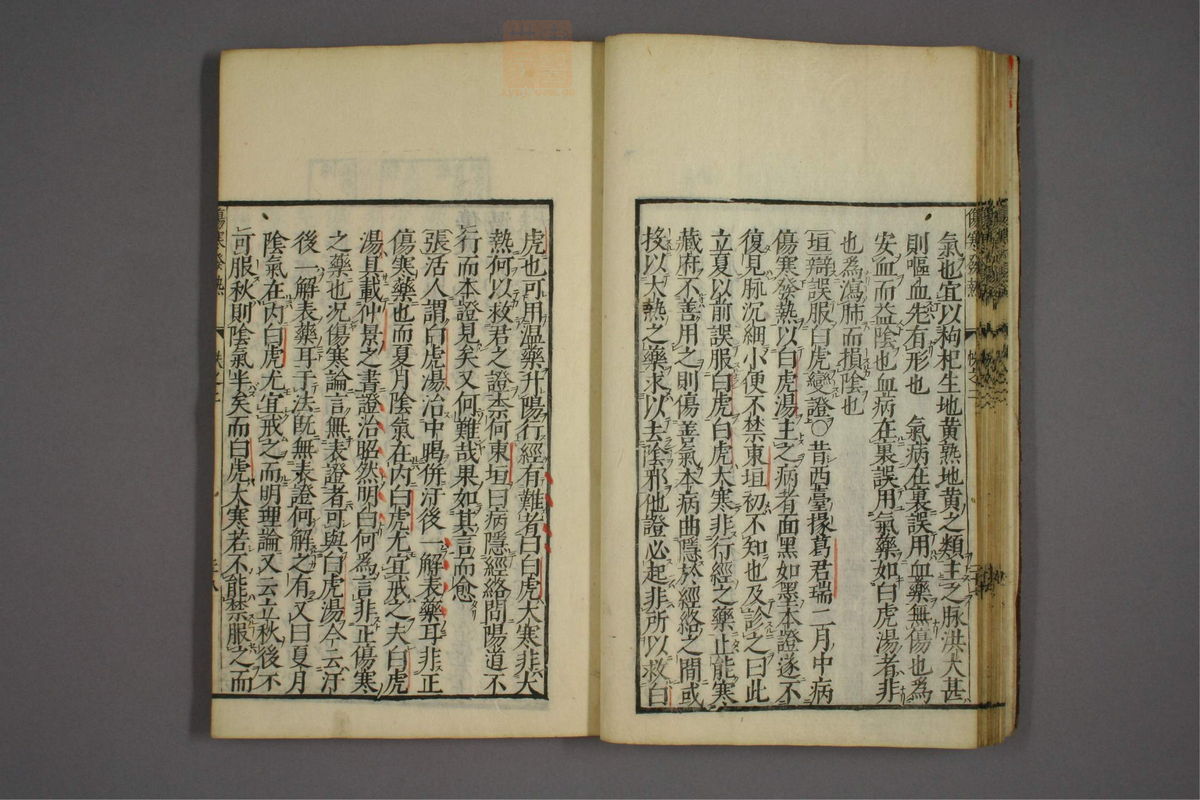 氣也宜以枸杞生地黃熟地黃之類主之脉洪大甚
則嘔血先有形也　氣病在裏誤用血藥無傷也爲
安血而益陰也血病在裏誤用氣藥如白虎湯者非
也爲瀉肺而損陰也
垣辯誤服白虎變證○昔西臺掾葛君瑞二月中病
傷寒發熱以白虎湯主之病者面黑如墨本證遂不
復見脉沉細小便不禁東垣初不知也及診之曰此
立夏以前誤服白虎白虎大寒非行經之藥止能寒
藏府不善用之則傷善氣本病曲隱於經絡之間或
投以大熱之藥求以去陰邪他證必起非所以救白
傷寒發熱
虎也可用温藥升陽行經有難者曰白虎大寒非大
熱何以救君之證柰何東垣曰病隱經絡間陽道不
行而本證見矣又何難哉果如其言而愈
張活人謂白虎湯治中暍併汗後一解表藥耳非正
傷寒藥也而夏月陰氣在内白虎尤宜戒之夫白虎
湯具載仲景之書證治昭然明白何爲言非正傷寒
之藥也况傷寒論言無表證者可與白虎湯今云汗
後一解表藥耳于法旣無表證何解之有又曰夏月
陰氣在内白虎尤宜戒之而明理論又云立秋後不
可服秋則陰氣半矣而白虎大寒若不能禁服之而
傷寒發熱